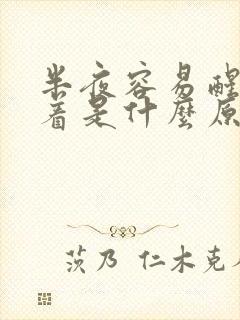 半夜容易醒
着是什麼原
茨乃 仁木克